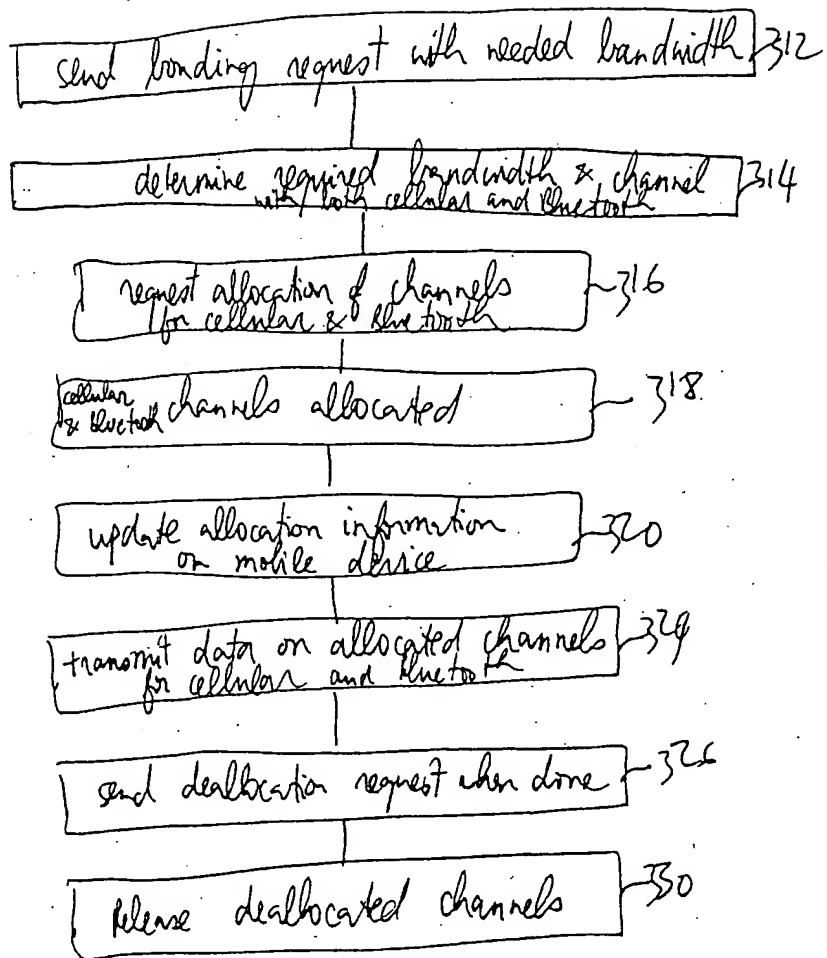 send bonding request with needed bandwidth 312
determine required bandwidth & channel 314
with both cellular and Bluetooth
request allocation of channels 316
for cellular & Bluetooth
cellular
& bluetooth channels allocated 318
update allocation information 320
on mobile device
transmit data on allocated channels 324
for cellular and Bluetooth
send deallocation request when done 326
Release deallocated channels 330